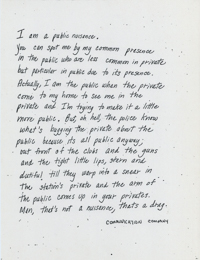 I am a public nuisence.
You can spot me by my common presence
in the public who are less common in private
but particular in public due to its presence.
Actually, I am the public when the private
come to my home to see me in the
private and I'm trying to make it a little
more public. But, oh hell, the police know
what's bugging the private about the
public because its all public anyway,
but front of the clubs and the guns
and the tight little lips, stern and
dutiful till they warp into a sneer in
the station's private and the arm of
the public comes up in your privates.
Man, that's not a nuisence, thats a drag.
COMMUNICATION COMPANY